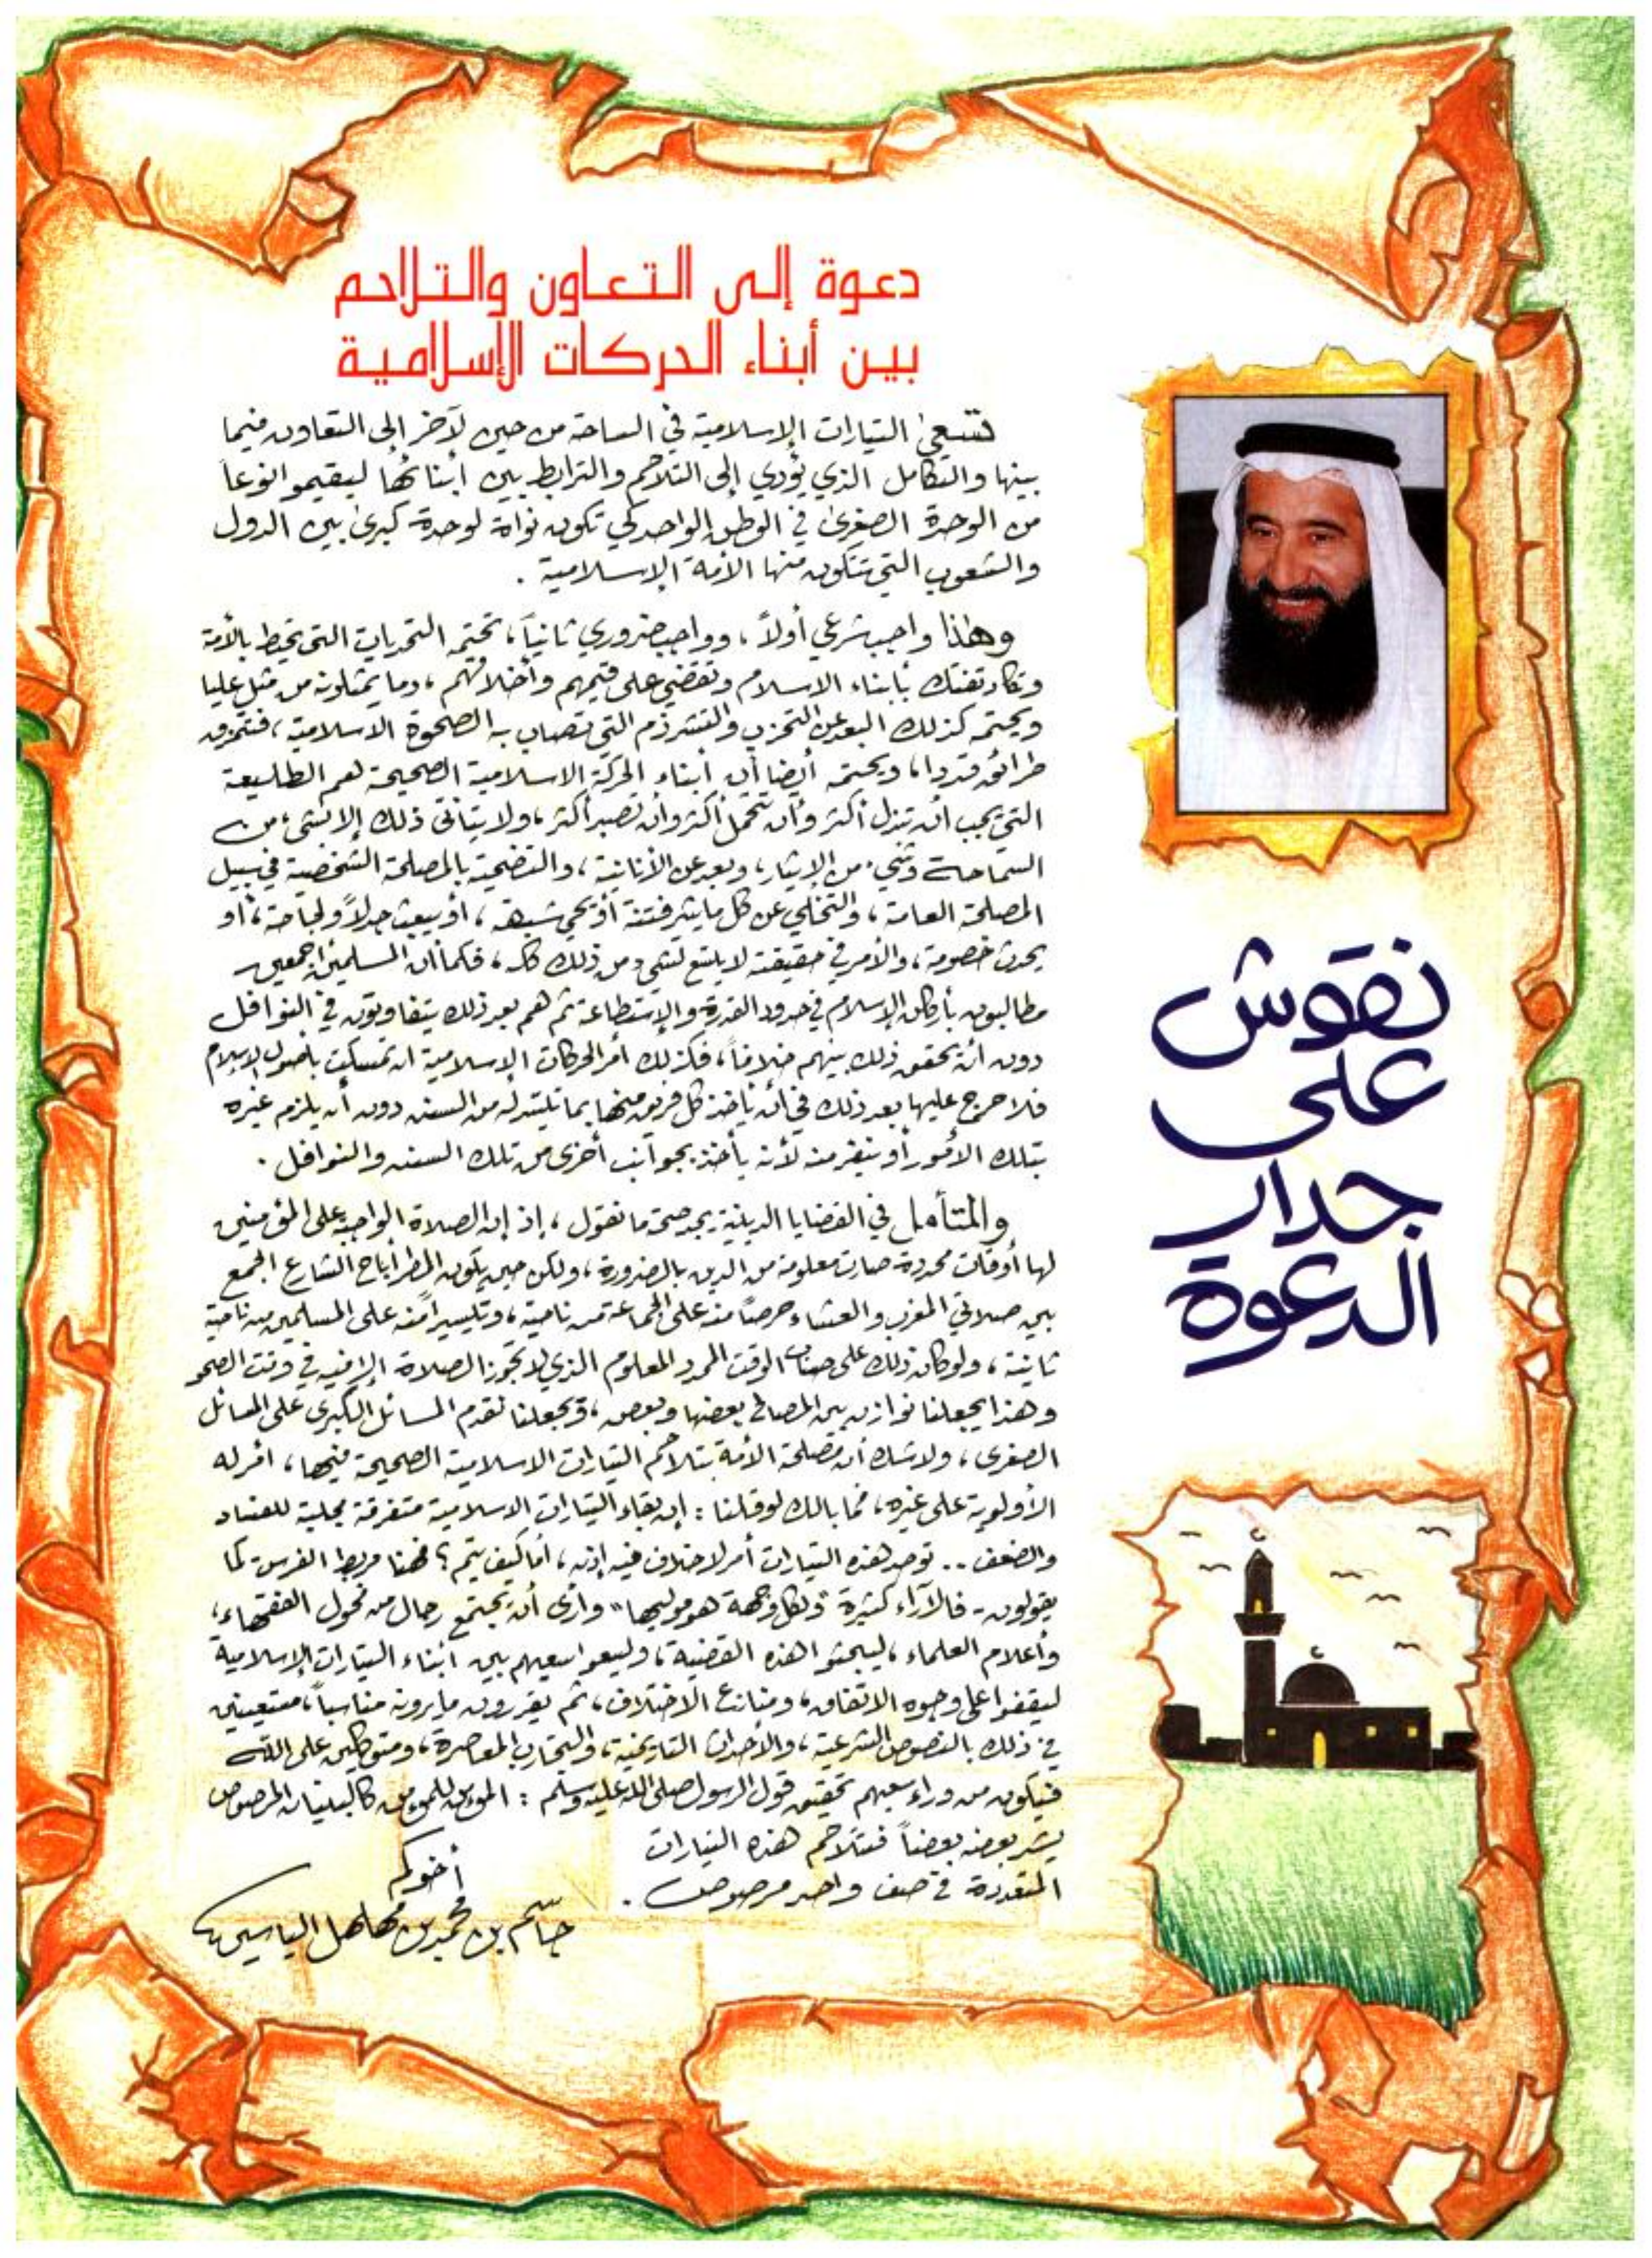 دعوة إلى التعاون والتلاحم
بين أبناء الحركات الإسلامية
تسعى التيارات الإسلامية في الساحة من حين لآخر إلى التعاون فيما
بينها والتكامل الذي يؤدي إلى التلاحم والترابط بين أبنائها ليقيموا نوعاً
من الوحدة الصغرى في الوطن الواحد كي تكون نواة لوحدة كبرى بين الدول
والشعوب التي تتكون منها الأمة الإسلامية .
وهذا واجب شرعي أولاً ، وواجب ضروري ثانياً ، تحتمه التحديات التي تحيط بالأمة
وتكاد تفتك بأبناء الاسلام وتقضي على قيمهم وأخلاقهم ، وما يمثلونه من مثل عليا
ويحتمه كذلك البعد عن التحزب والتشرذم التي تصاب به الصحوة الاسلامية ، فتتمزق
طرائق قددا ، ويحتمه أيضا أن أبناء الحركة الاسلامية الصحيحة هم الطليعة
التي يجب ان تبذل أكثر وأن تتحمل أكثر وأن تصبر أكثر ، ولا يتأتى ذلك إلا بشيء من
السماحة وشيء من الإيثار ، وبعد عن الأنانية ، والتضحية بالمصلحة الشخصية في سبيل
المصلحة العامة ، والتخلي عن كل ما يثير فتنة أو يحي شبهة ، أو يبعث جدلاً ولجاجة ، أو
يحدث خصومة ، والأمر في حقيقته لا يتسع لشيء من ذلك كله ، فكما أن المسلمين أجمعين
مطالبون بأركان الإسلام في حدود القدرة والإستطاعة ثم هم بعد ذلك يتفاوتون في النوافل
دون أن يحقق ذلك بينهم خلافاً ، فكذلك أمر الحركات الإسلامية ان تمسكت بأصول الإسلام
فلا حرج عليها بعد ذلك في أن يأخذ كل فريق منها بما تيسر له من السنن دون أن يلزم غيره
بتلك الأمور أو ينفر منه لأنه يأخذ بجوانب أخرى من تلك السنن والنوافل .
والمتأمل في القضايا الدينية يجد صحة ما نقول ، إذ إن الصلاة الواجبة على المؤمنين
لها أوقات محددة صارت معلومة من الدين بالضرورة ، ولكن حين يكون المطر أباح الشارع الجمع
بين صلاتي المغرب والعشاء حرصاً منه على الجماعة من ناحية ، وتيسيراً منه على المسلمين من ناحية
ثانية ، ولو كان ذلك على حساب الوقت المحدد المعلوم الذي لا تجوز الصلاة إلا فيه في وقت الصحو
وهذا يجعلنا نوازن بين المصالح بعضها وبعض ، ويجعلنا نقدم المسائل الكبرى على المسائل
الصغرى ، ولا شك أن مصلحة الأمة بتلاحم التيارات الاسلامية الصحيحة فيها ، أمر له
الأولوية على غيره ، فما بالك لو قلنا : إن بقاء التيارات الإسلامية متفرقة مجلبة للفساد
والضعف .. توحد هذه التيارات أمر لا خلاف فيه إذن ، أما كيف يتم ؟ فهنا مربط الفرس - كما
يقولون - فالآراء كثيرة "ولكل وجهة هو موليها" وأرى أن يجتمع رجال من فحول الفقهاء ،
وأعلام العلماء ، ليبحثوا هذه القضية ، وليسعوا سعيهم بين أبناء التيارات الإسلامية
ليقفوا على وجوه الاتفاق ، ومنازع الاختلاف ، ثم يقررون ما يرونه مناسباً ، مستعينين
في ذلك بالنصوص الشرعية ، والأحداث التاريخية ، والتجارب المعاصرة ، ومتوكلين على الله
فيكون من وراء سعيهم تحقيق قول الرسول صلى الله عليه وسلم : المؤمن للمؤمن كالبنيان المرصوص
يشد بعضه بعضاً فتتلاحم هذه التيارات
المتعددة في صف واحد مرصوص .
أخوكم
جاسم بن محمد بن مهلهل الياسين
نقوش
على
جدار
الدعوة